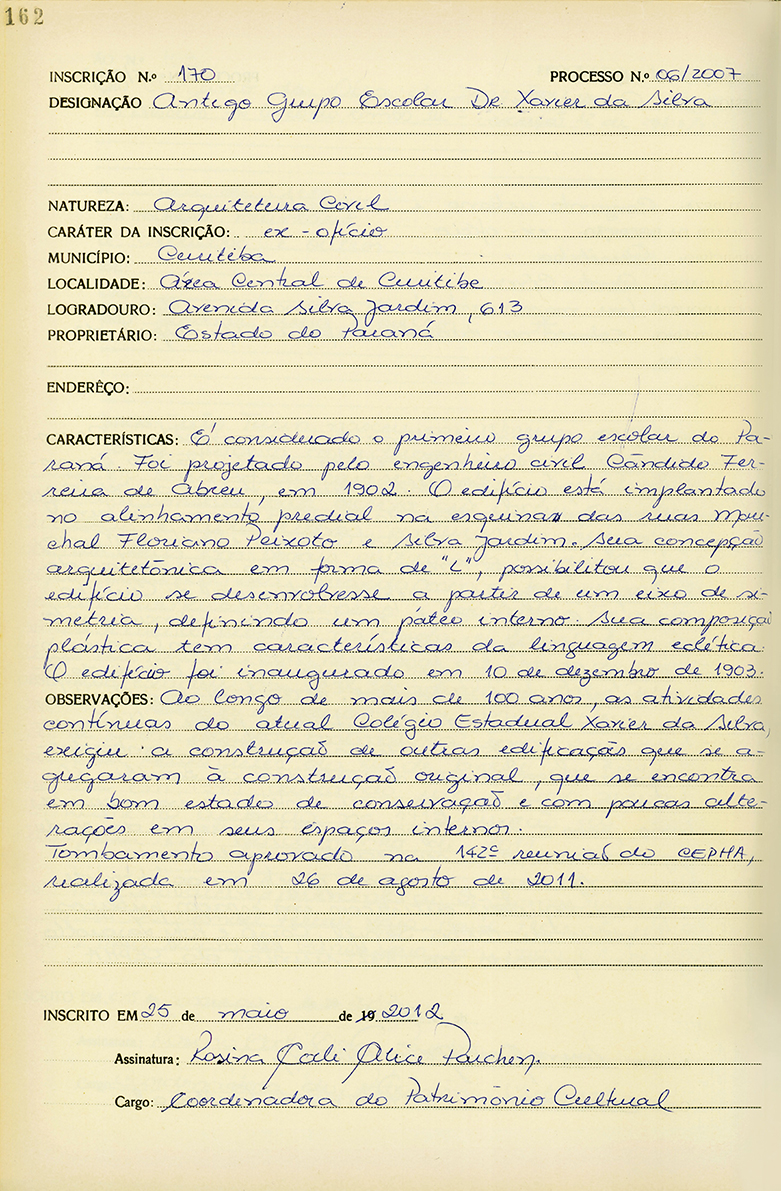 162
INSCRIÇÃO N.º 170 PROCESSO N.º 06/2007
DESIGNAÇÃO Antigo Grupo Escolar De Xavier da Silva
NATUREZA: Arquitetura Civil
CARÁTER DA INSCRIÇÃO: ex-ofício
MUNICÍPIO: Curitiba
LOCALIDADE: Área Central de Curitiba
LOGRADOURO: Avenida Silva Jardim, 613
PROPRIETÁRIO: Estado do Paraná
ENDERÊÇO:
CARACTERÍSTICAS: É considerado o primeiro grupo escolar do Pa-
raná. Foi projetado pelo engenheiro civil Cândido Fer-
reira de Abreu, em 1902. O edifício está implantado
no alinhamento predial na esquina das ruas Mare-
chal Floriano Peixoto e Silva Jardim. Sua concepção
arquitetônica em forma de "L", possibilitou que o
edifício se desenvolvesse a partir de um eixo de si-
metria, definindo um páteo interno. Sua composição
plástica tem características da linguagem eclética.
O edifício foi inaugurado em 10 de dezembro de 1903.
OBSERVAÇÕES: Ao longo de mais de 100 anos, as atividades
contínuas do atual Colégio Estadual Xavier da Silva,
exigiu a construção de outras edificações que se a-
gregaram à construção original, que se encontra
em bom estado de conservação e com poucas alte-
rações em seus espaços internos.
Tombamento aprovado na 142ª reunião do CEPHA,
realizada em 26 de agosto de 2011.
INSCRITO EM 25 de maio de 19 2012
Assinatura: Rosina Coeli Alice Parchen.
Cargo: Coordenadora do Patrimônio Cultural